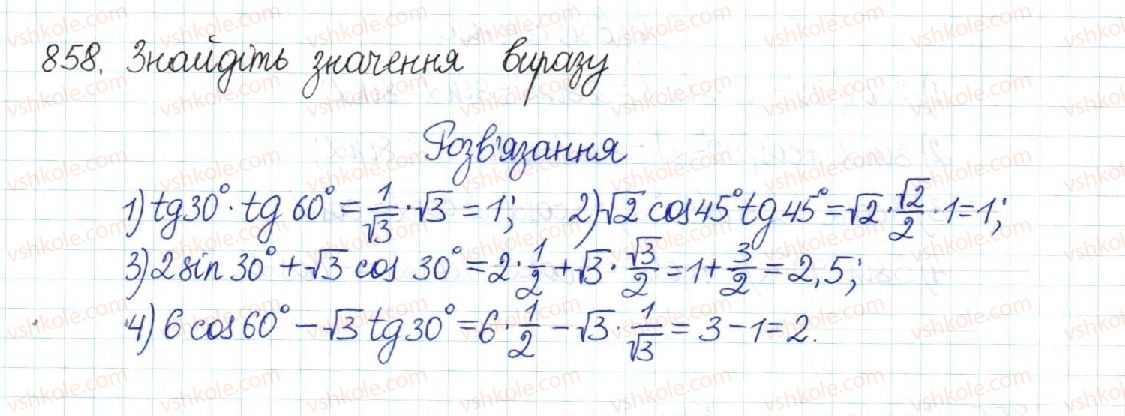 858. Знайдіть значення виразу
Розв'язання
1) tg30°·tg 60° = 1/√3 · √3 = 1; 2) √2 cos45°tg45° = √2 · √2/2 · 1 = 1;
3) 2sin 30° + √3 cos 30° = 2 · 1/2 + √3 · √3/2 = 1 + 3/2 = 2,5;
4) 6 cos60° − √3 tg30° = 6 · 1/2 − √3 · 1/√3 = 3 − 1 = 2.